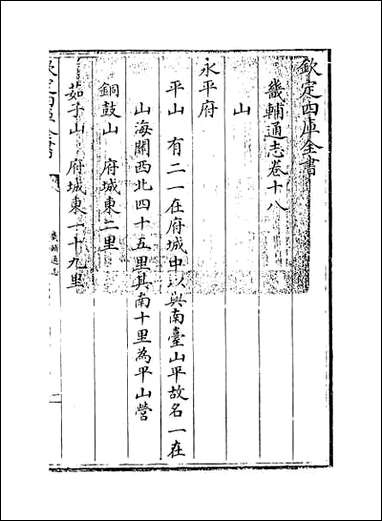 欽定四庫全書
畿輔通志卷十八
山
永平府
平山 有二一在府城中以與南臺山平故名一在
山海關西北四十五里其南十里為平山營
銅鼓山 府城東二里
茹子山 府城東一十九里
畿輔通志